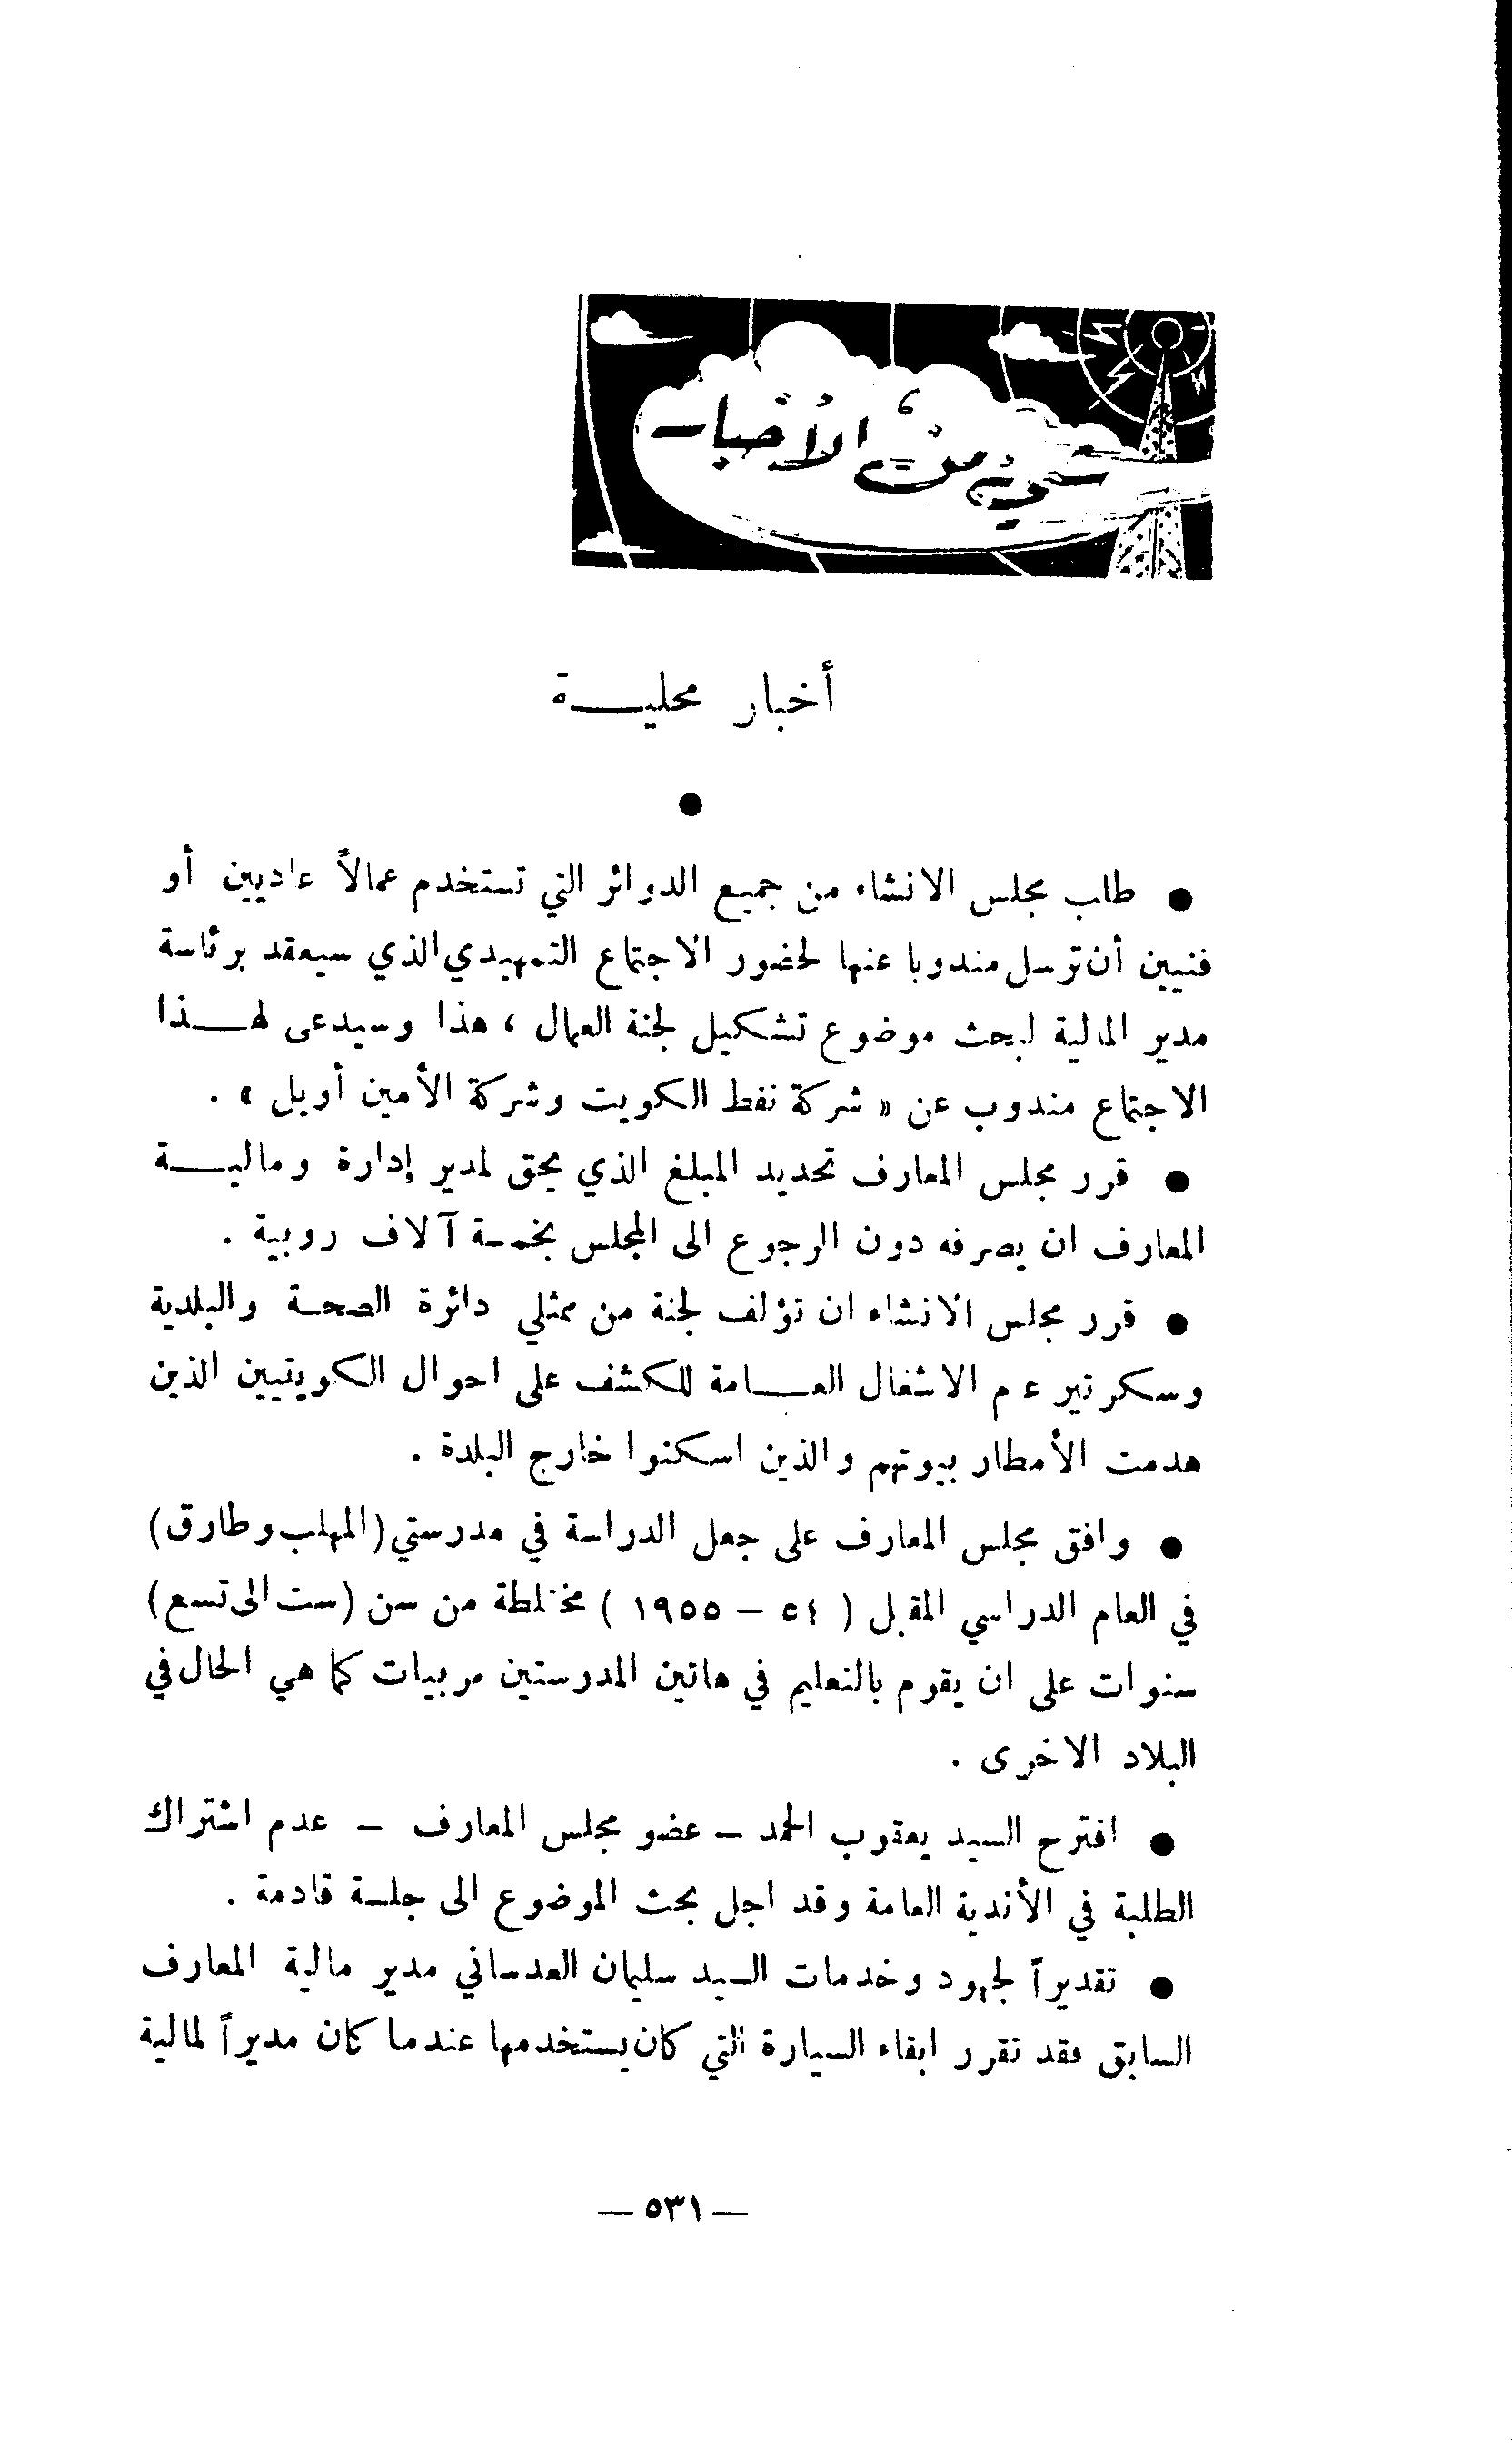 شيء من الأخبار
أخبار محليـــة
● طلب مجلس الانشاء من جميع الدوائر التي تستخدم عمالاً عاديين أو
فنيين أن ترسل مندوبا عنها لحضور الاجتماع التمهيدي الذي سيعقد برئاسة
مدير المالية لبحث موضوع تشكيل لجنة العمال ، هذا وسيدعى لهـــذا
الاجتماع مندوب عن « شركة نفط الكويت وشركة الأمين أويل » .
● قرر مجلس المعارف تحديد المبلغ الذي يحق لمدير إدارة وماليـــة
المعارف ان يصرفه دون الرجوع الى المجلس بخمسة آلاف روبية .
● قرر مجلس الانشاء ان تؤلف لجنة من ممثلي دائرة الصحـة والبلدية
وسكرتير عم الاشغال العـــامة للكشف على احوال الكويتيين الذين
هدمت الأمطار بيوتهم والذين اسكنوا خارج البلدة .
● وافق مجلس المعارف على جعل الدراسة في مدرستي (المهلب وطارق)
في العام الدراسي المقبل ( ٥٤ – ١٩٥٥ ) مختلطة من سن (ست الى تسع)
سنوات على ان يقوم بالتعليم في هاتين المدرستين مربيات كما هي الحال في
البلاد الاخرى .
● افترح السيد يعقوب الحمد – عضو مجلس المعارف – عدم اشتراك
الطلبة في الأندية العامة وقد اجل بحث الموضوع الى جلسة قادمة .
● تقديراً لجهود وخدمات السيد سليمان العدساني مدير مالية المعارف
السابق فقد تقرر ابقاء السيارة التي كان يستخدمها عندما كان مديراً لمالية
— ٥٣١ —